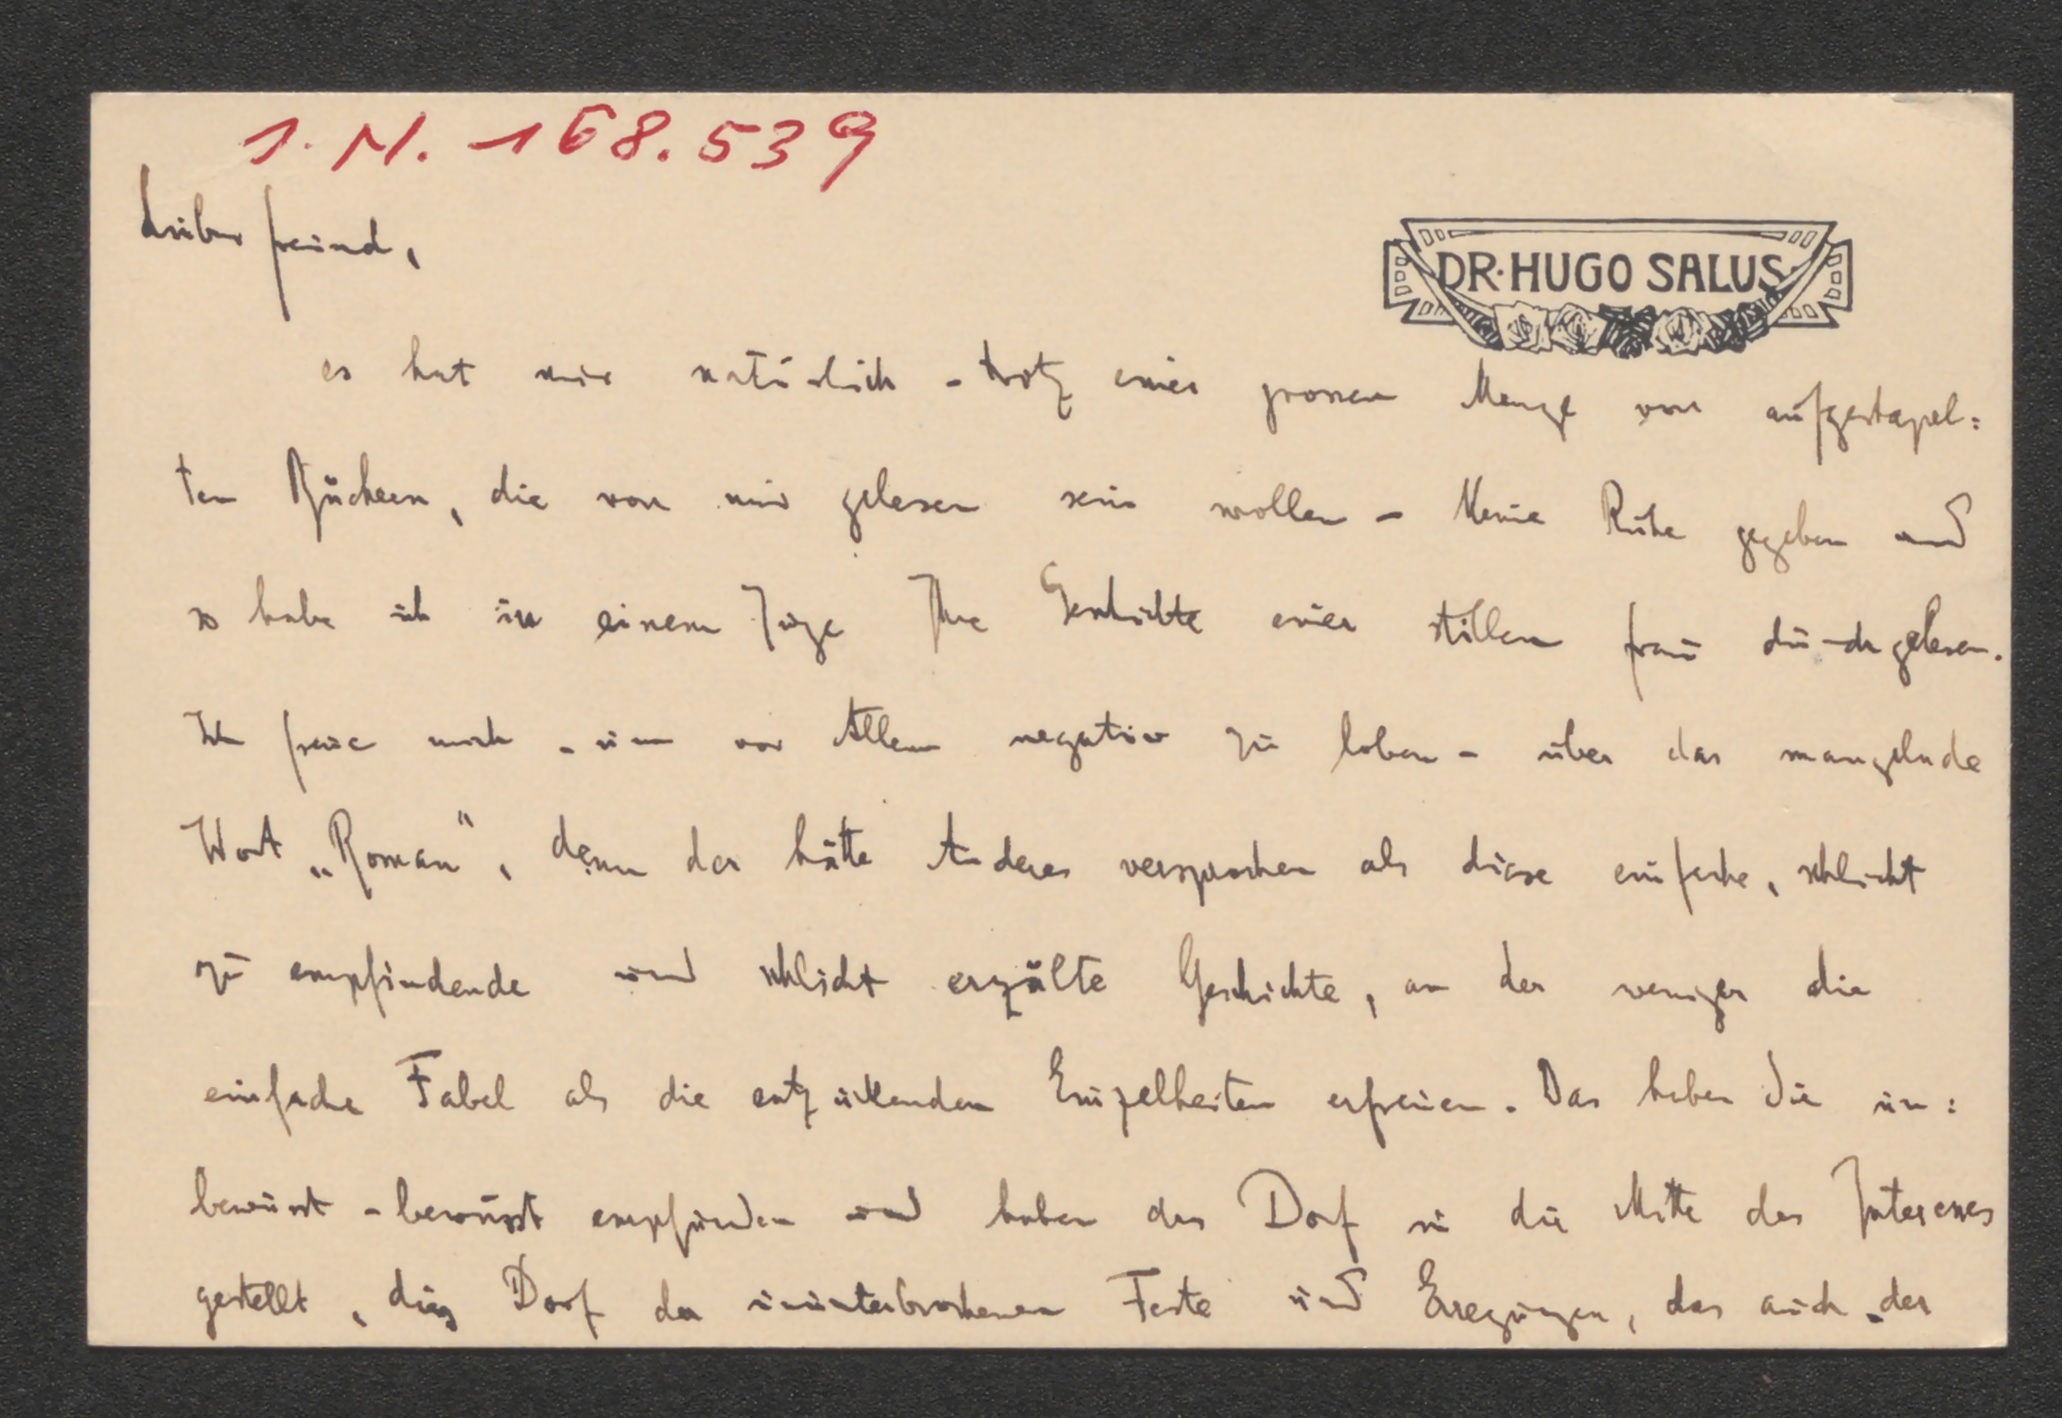 I.N. 168.539
Lieber Freund,
DR. HUGO SALUS
es hat mir natürlich - trotz einer grossen Menge von aufgestapel:
ten Büchern, die von mir gelesen sein wollen - keine Ruhe gegeben und
so habe ich in einem Zuge Ihre Geschichte einer stillen Frau durchgelesen.
Ich freue mich - um vor Allem negativ zu loben - über das mangelnde
Wort „Roman“, denn das hätte Anderes versprochen als diese einfache, schlicht
zu empfindende und schlicht erzälte Geschichte, an der weniger die
einfache Fabel als die entzückenden Einzelheiten erfreuen. Das haben Sie un:
bewusst - bewusst empfunden und haben das Dorf in die Mitte des Interesses
gestellt, dies Dorf der ununterbrochenen Feste und Erregungen, das auch der